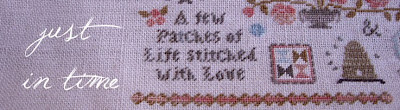 just
in time
A few
Patches of
Life stitched
with Love
&